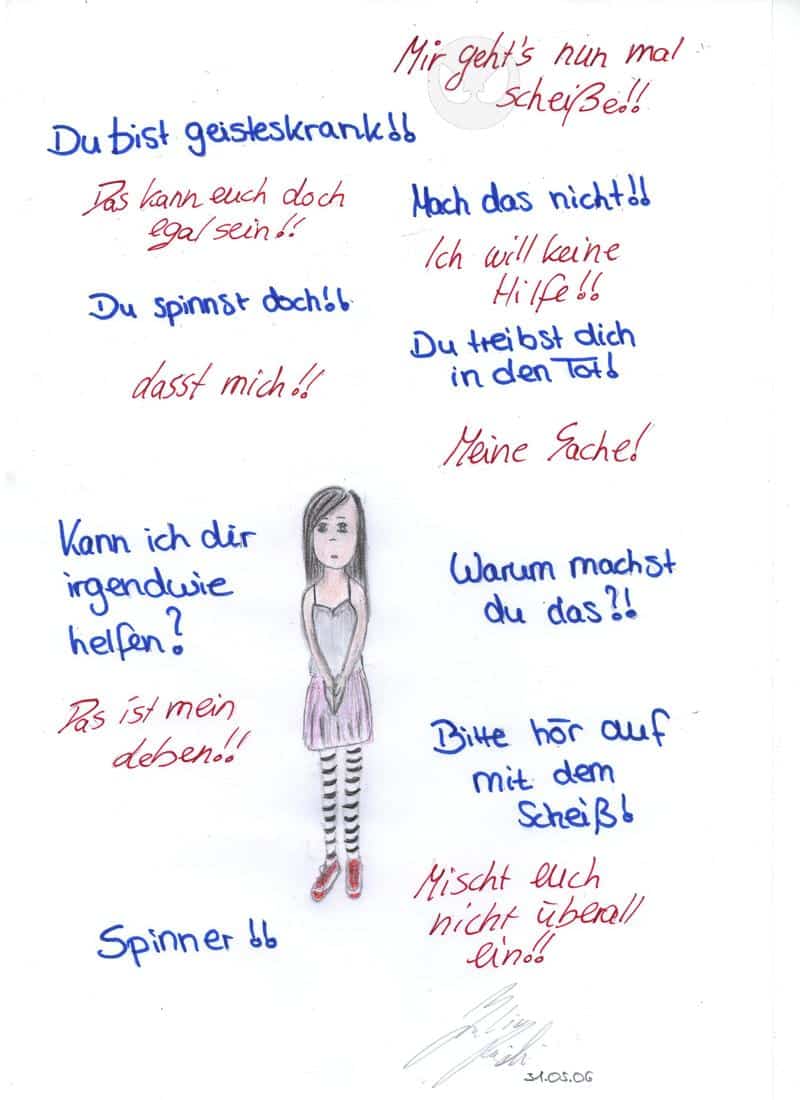 Mir geht's nun mal
scheiße!!
Du bist geisteskrank!!
Das kann euch doch
egal sein!!
Mach das nicht!!
Ich will keine
Hilfe!!
Du spinnst doch!!
Du treibst dich
in den Tot!
Lasst mich!!
Meine Sache!
Kann ich dir
irgendwie
helfen?
Warum machst
du das?!
Das ist mein
Leben!!
Bitte hör auf
mit dem
Scheiß!
Mischt euch
nicht überall
ein!!
Spinner!!
31.05.06